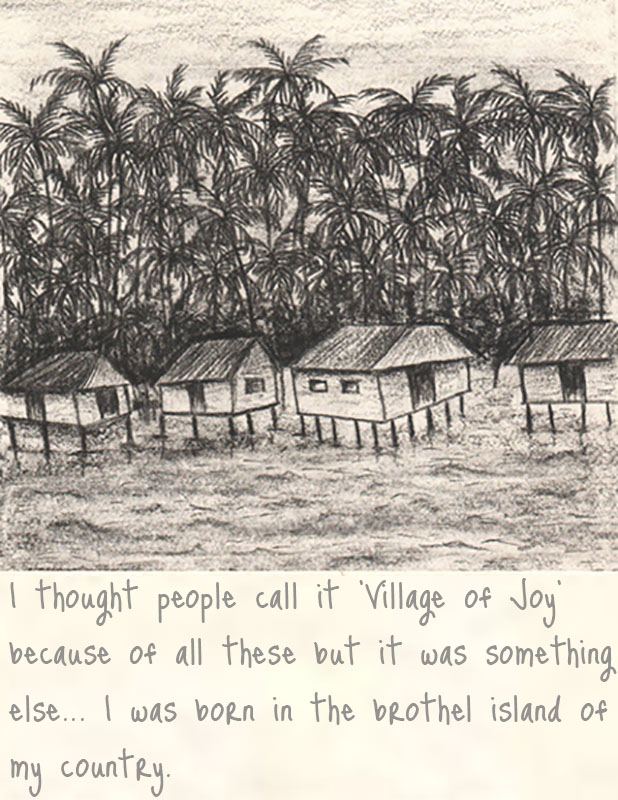 I thought people call it 'Village of Joy'
because of all these but it was something
else... I was born in the brothel island of
my country.